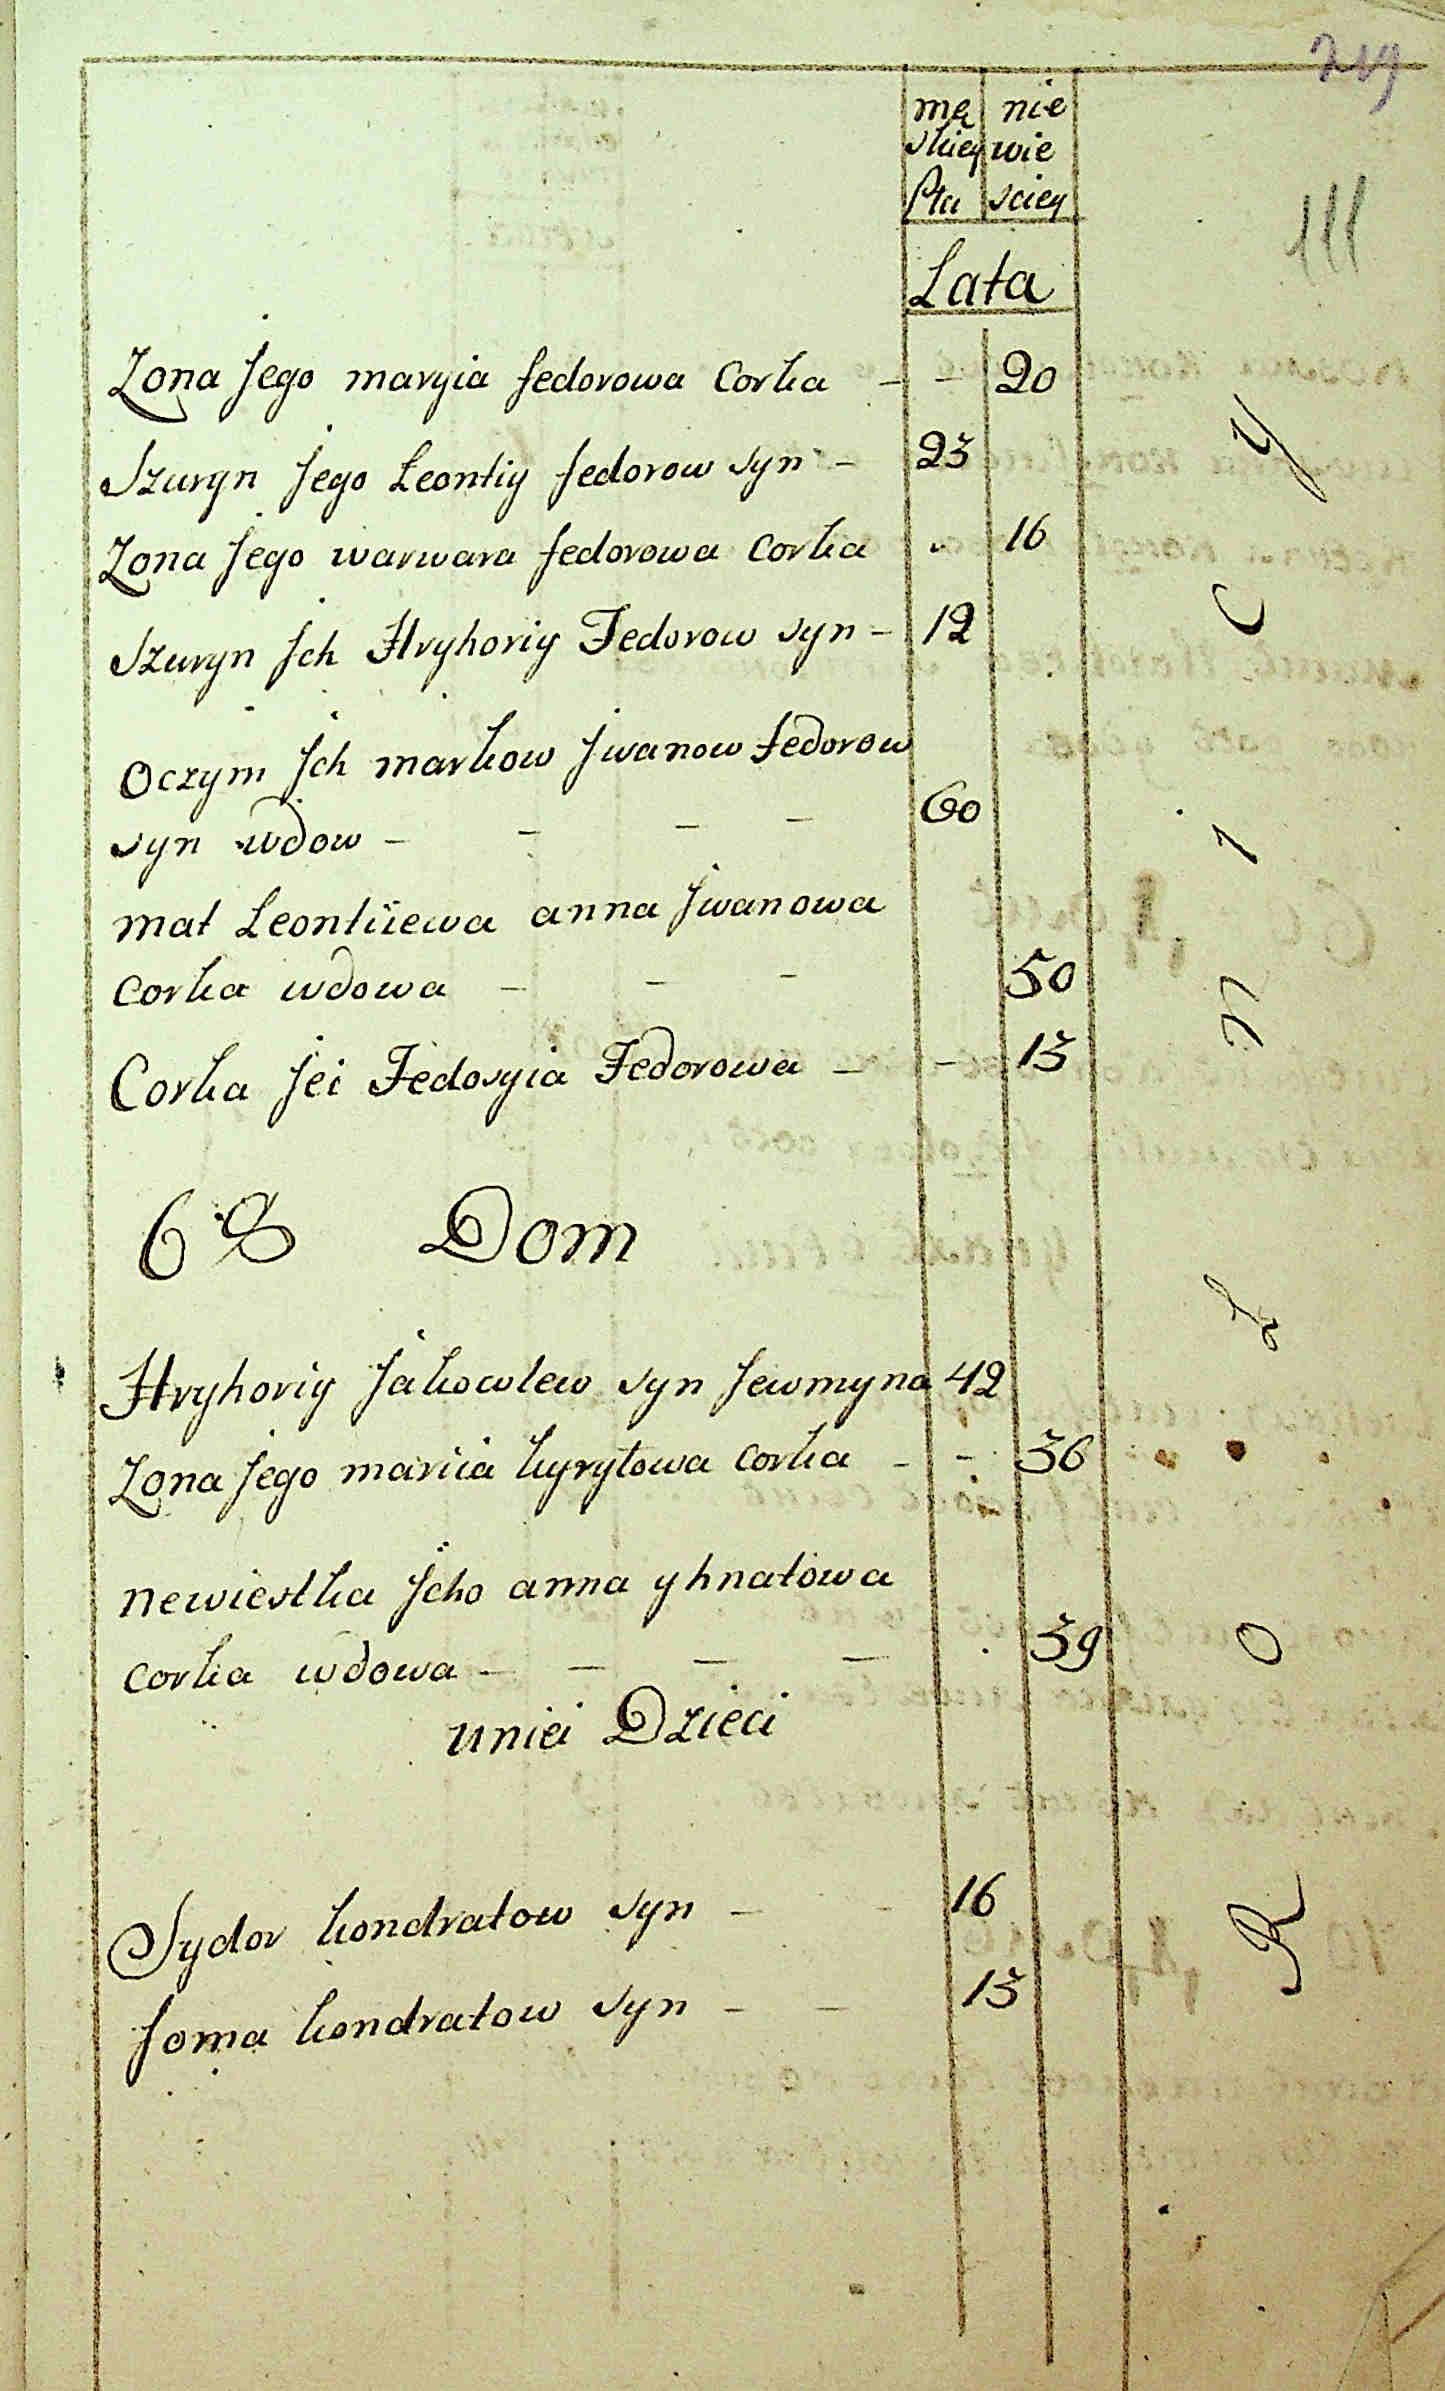 219
111
mę nie
skiey wie
Płci sciey
Lata
Zona Jego maryia fedorowa Corka - - 20
Szuryn Jego Leontiy fedorow syn - 23
Zona Jego warwara fedorowa Corka 16
Szuryn Jch Hryhoriy Fedorow syn - 12
Oczym Jch markow Jwanow fedorow
syn wdow - - - - 60
mat Leontiiewa anna Jwanowa
corka wdowa - - - 50
Corka Jei Fedosyia Fedorowa - - 13
6 Dom
Hryhoriy Jakowlew syn 42
Zona Jego mariia kyryłowa corka - - 36
newiestka Jeho anna yhnatowa
corka wdowa - - - - 39
uniei Dzieci
Sydor kondratow syn - - 16
foma kondratow syn - - 13
R o l n i c y